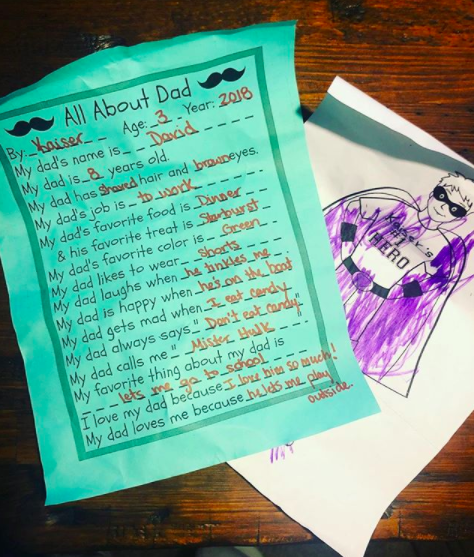 All About Dad
By: Kaiser Age: 3 Year: 2018
My dad's name is David
My dad is 8 years old.
My dad has shaved hair and brown eyes.
My dad's job is to work
My dad's favorite food is Dinner
& his favorite treat is Starburst
My dad's favorite color is Green
My dad likes to wear shorts
My dad laughs when he tinkles me
My dad is happy when he's on the boat
My dad gets mad when I eat candy
My dad always says "Don't eat candy"
My dad calls me "Mister Hulk"
My favorite thing about my dad is
lets me go to school
I love my dad because I love him so much!
My dad loves me because he lets me play
outside.
#1
HERO